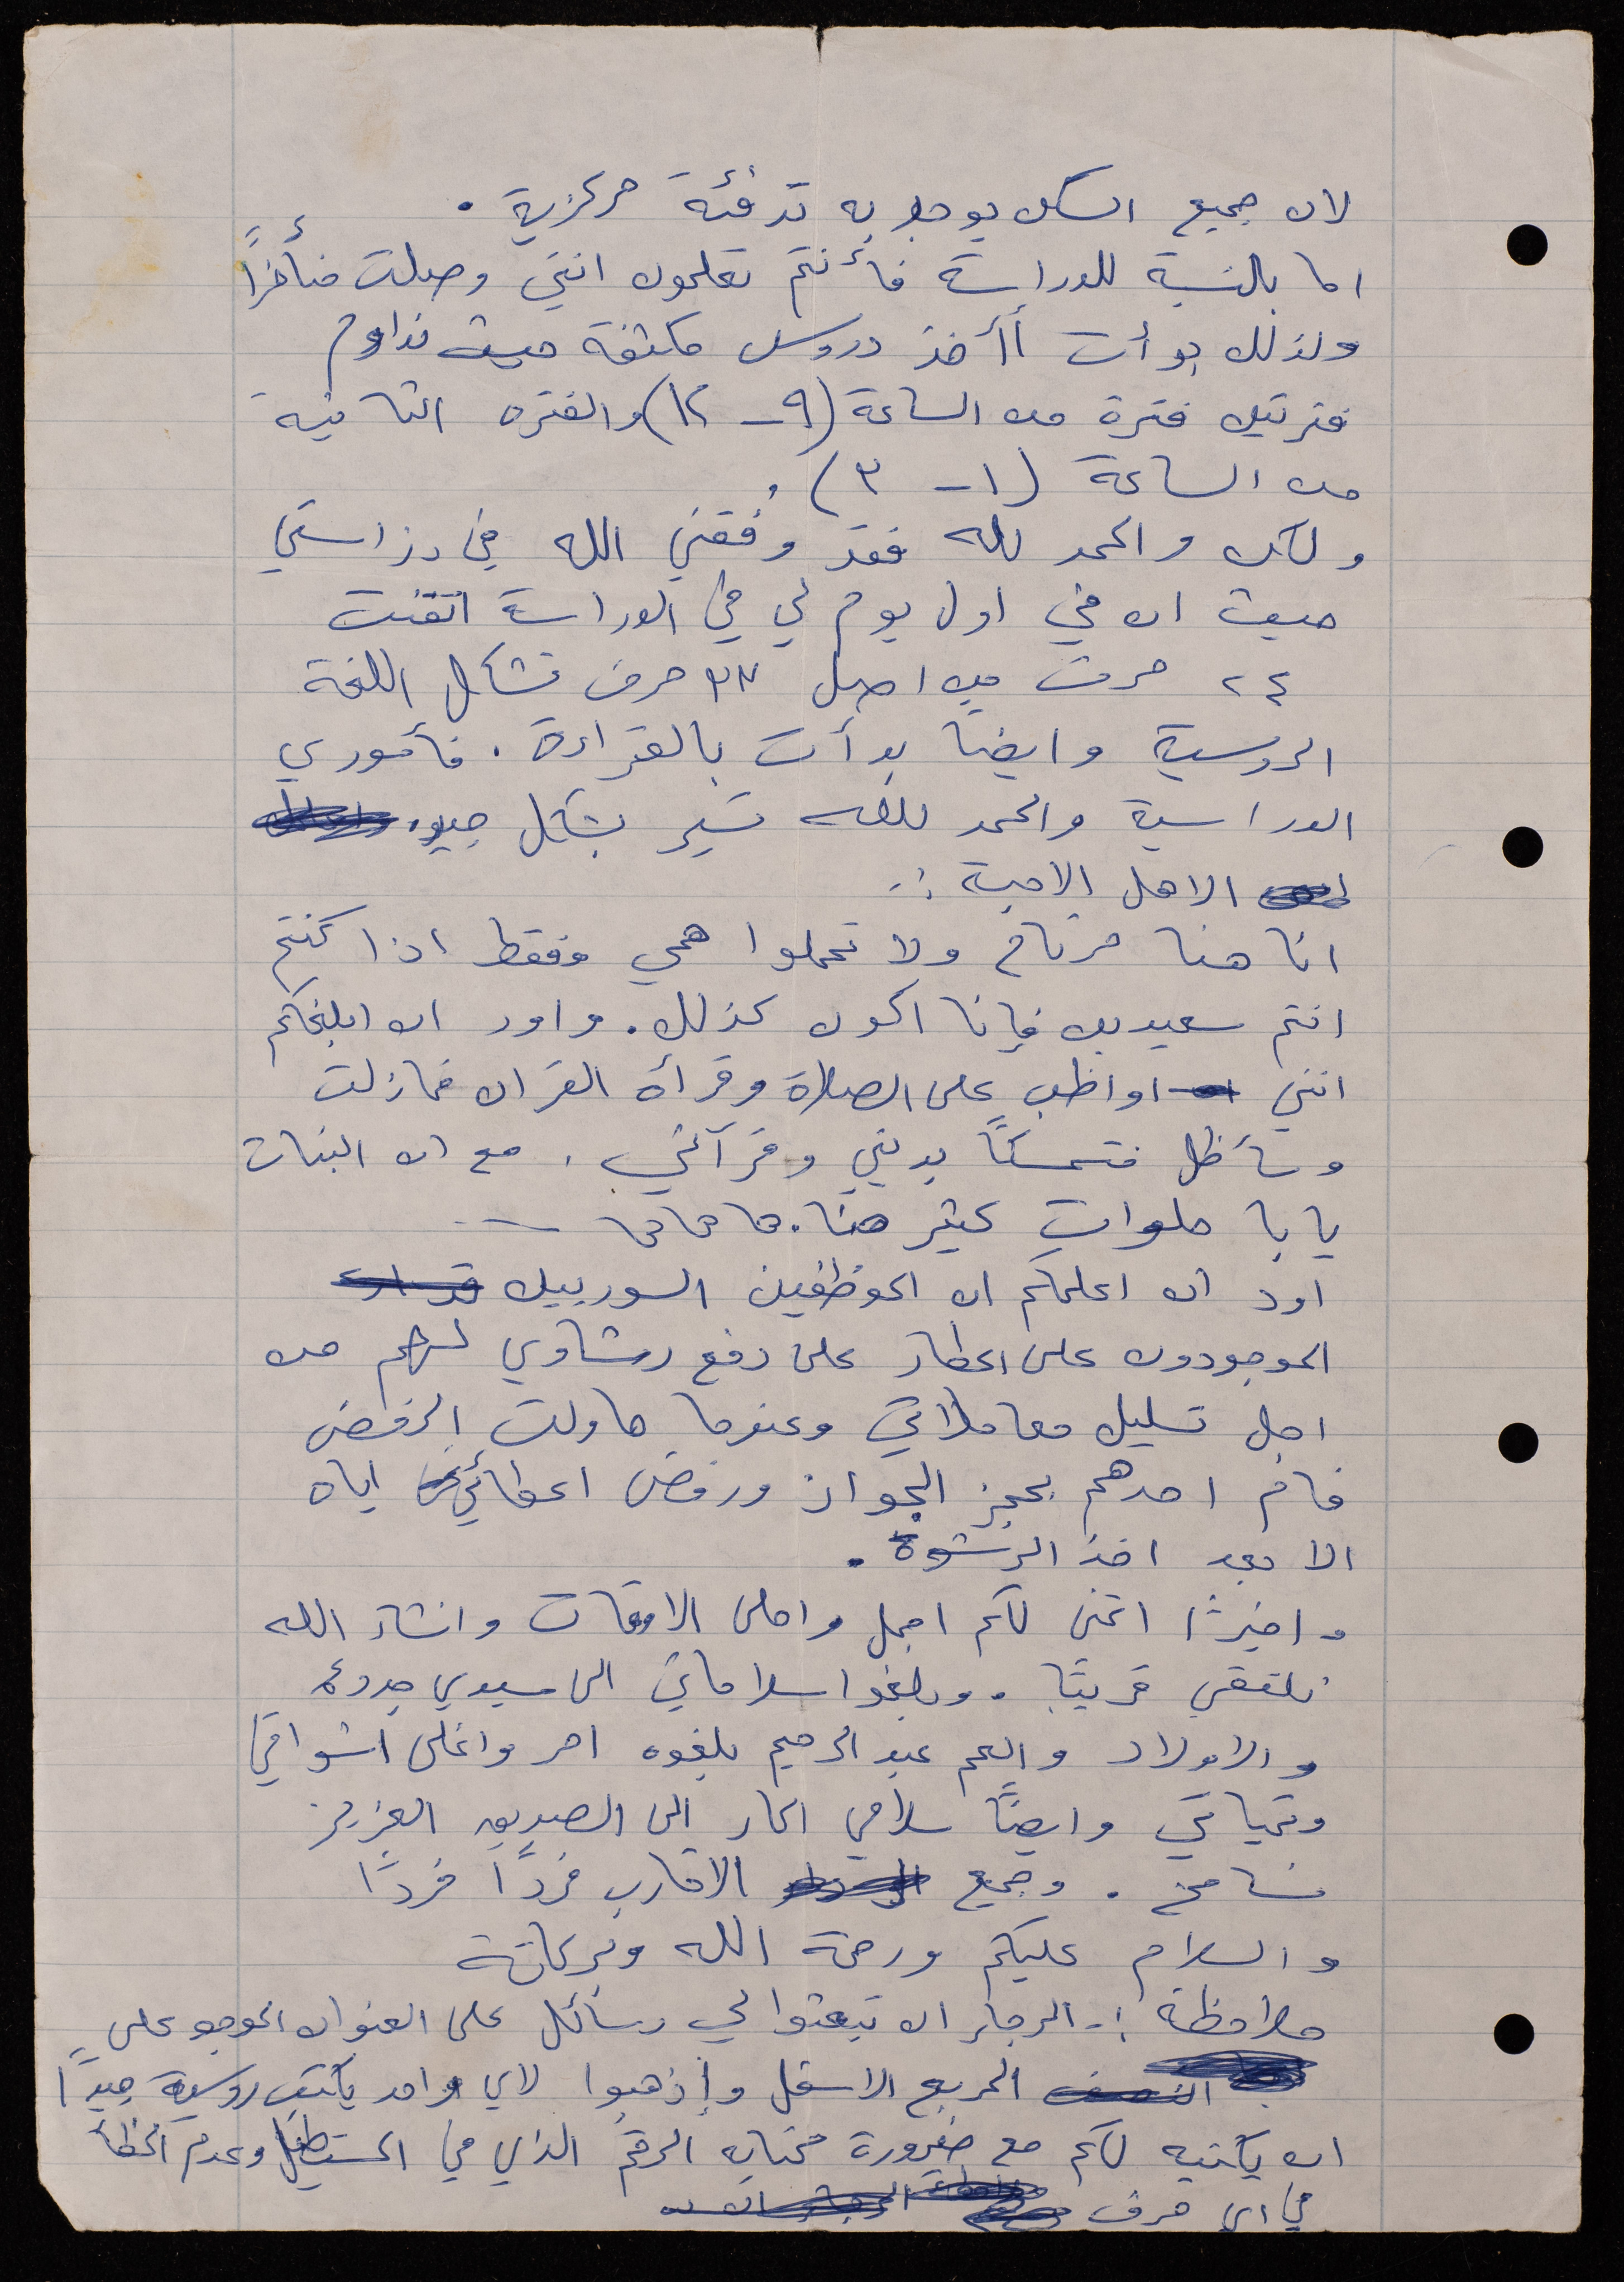 لان جميع السكن يوجد به تدفئة مركزية .
اما بالنسبة للدراسة فأنتم تعلمون انني وصلت متأخراً
ولذلك بدأت أأخذ دروس مكثفة حيث نداوم
فترتين فترة من الساعة (٩ – ١٢) والفتره الثانية
من الساعة (١ – ٣) .
ولكن والحمد لله فقد وفقني الله في دراستي
حيث ان في اول يوم لي في الدراسة اتقنت
٢٤ حرف من اصل ٣٣ حرف تشكل اللغة
الروسية وايضاً بدأت بالقراءة . فأموري
الدراسية والحمد لله تسير بشكل جيد.
الاهل الاحبة :-
انا هنا مرتاح ولا تحملوا همي وفقط اذا كنتم
انتم سعيدين فإنا اكون كذلك. واود ان ابلغكم
انني اواظب على الصلاة وقرأة القران فمازلت
وسأظل متمسكاً بديني وقرآني . مع ان البنات
يابا حلوات كثير هنا. هاهاها
اود ان اعلمكم ان الموظفين السوريين
الموجودون على المطار على دفع رشاوي لهم من
اجل تسليك معاملاتي وعندما حاولت الرفض
قام احدهم بحجز الجواز ورفض اعطائي اياه
الا بعد اخذ الرشوة .
واخيراً اتمنى لكم اجمل واحلى الاوقات وانشاء الله
نلتقي قريباً . وبلغوا سلاماتي الى سيدي جدوع
والاولاد والعم عبد الرحيم بلغوه احر واغلى اشواقي
وتحياتي وايضاً سلامي الحار الى الصديق العزيز
سامح . وجميع الاقارب فرداً فرداً
والسلام عليكم ورحمة الله وبركاتة
ملاحظة :- الرجاء ان تبعثوا لي رسائل على العنوان الموجو على
المربع الاسفل وإذهبوا لاي واحد يكتب روسية جيداً
ان يكتبه لكم مع ضرورة كتابه الرقم الذي في المستطيل وعدم الخطأ
في اي حرف